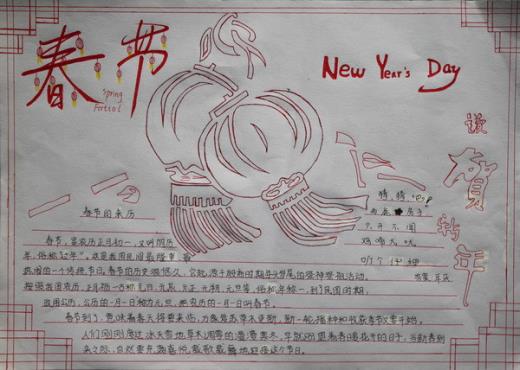 春节
Spring
New Year's Day
谈
贺
新
年
春节的来历
春节,是农历正月初一,又叫阴历
年,俗称"过年",这是我国民间最隆重
热闹的一个传统节日。春节的历史很悠久,它起源于殷商时期年头岁尾的祭神祭祖活动。
按照我国农历,正月初一古称元日、元辰、元正、元朔、元旦等,俗称年初一,到了民国时期,
改用公历,公历的一月一日称为元旦,把农历的一月一日叫春节。
春节到了,意味着春天将要来临,万象复苏草木更新,新一轮播种和收获季节又要开始。
人们刚刚度过冰天雪地草木凋零的漫漫寒冬,早就盼望着春暖花开的日子,当新春到
来之际,自然要充满喜悦载歌载舞地迎接这个节日。
猜 猜 吧
房子
只 开 不 闭
鸡 鸣 犬 吠